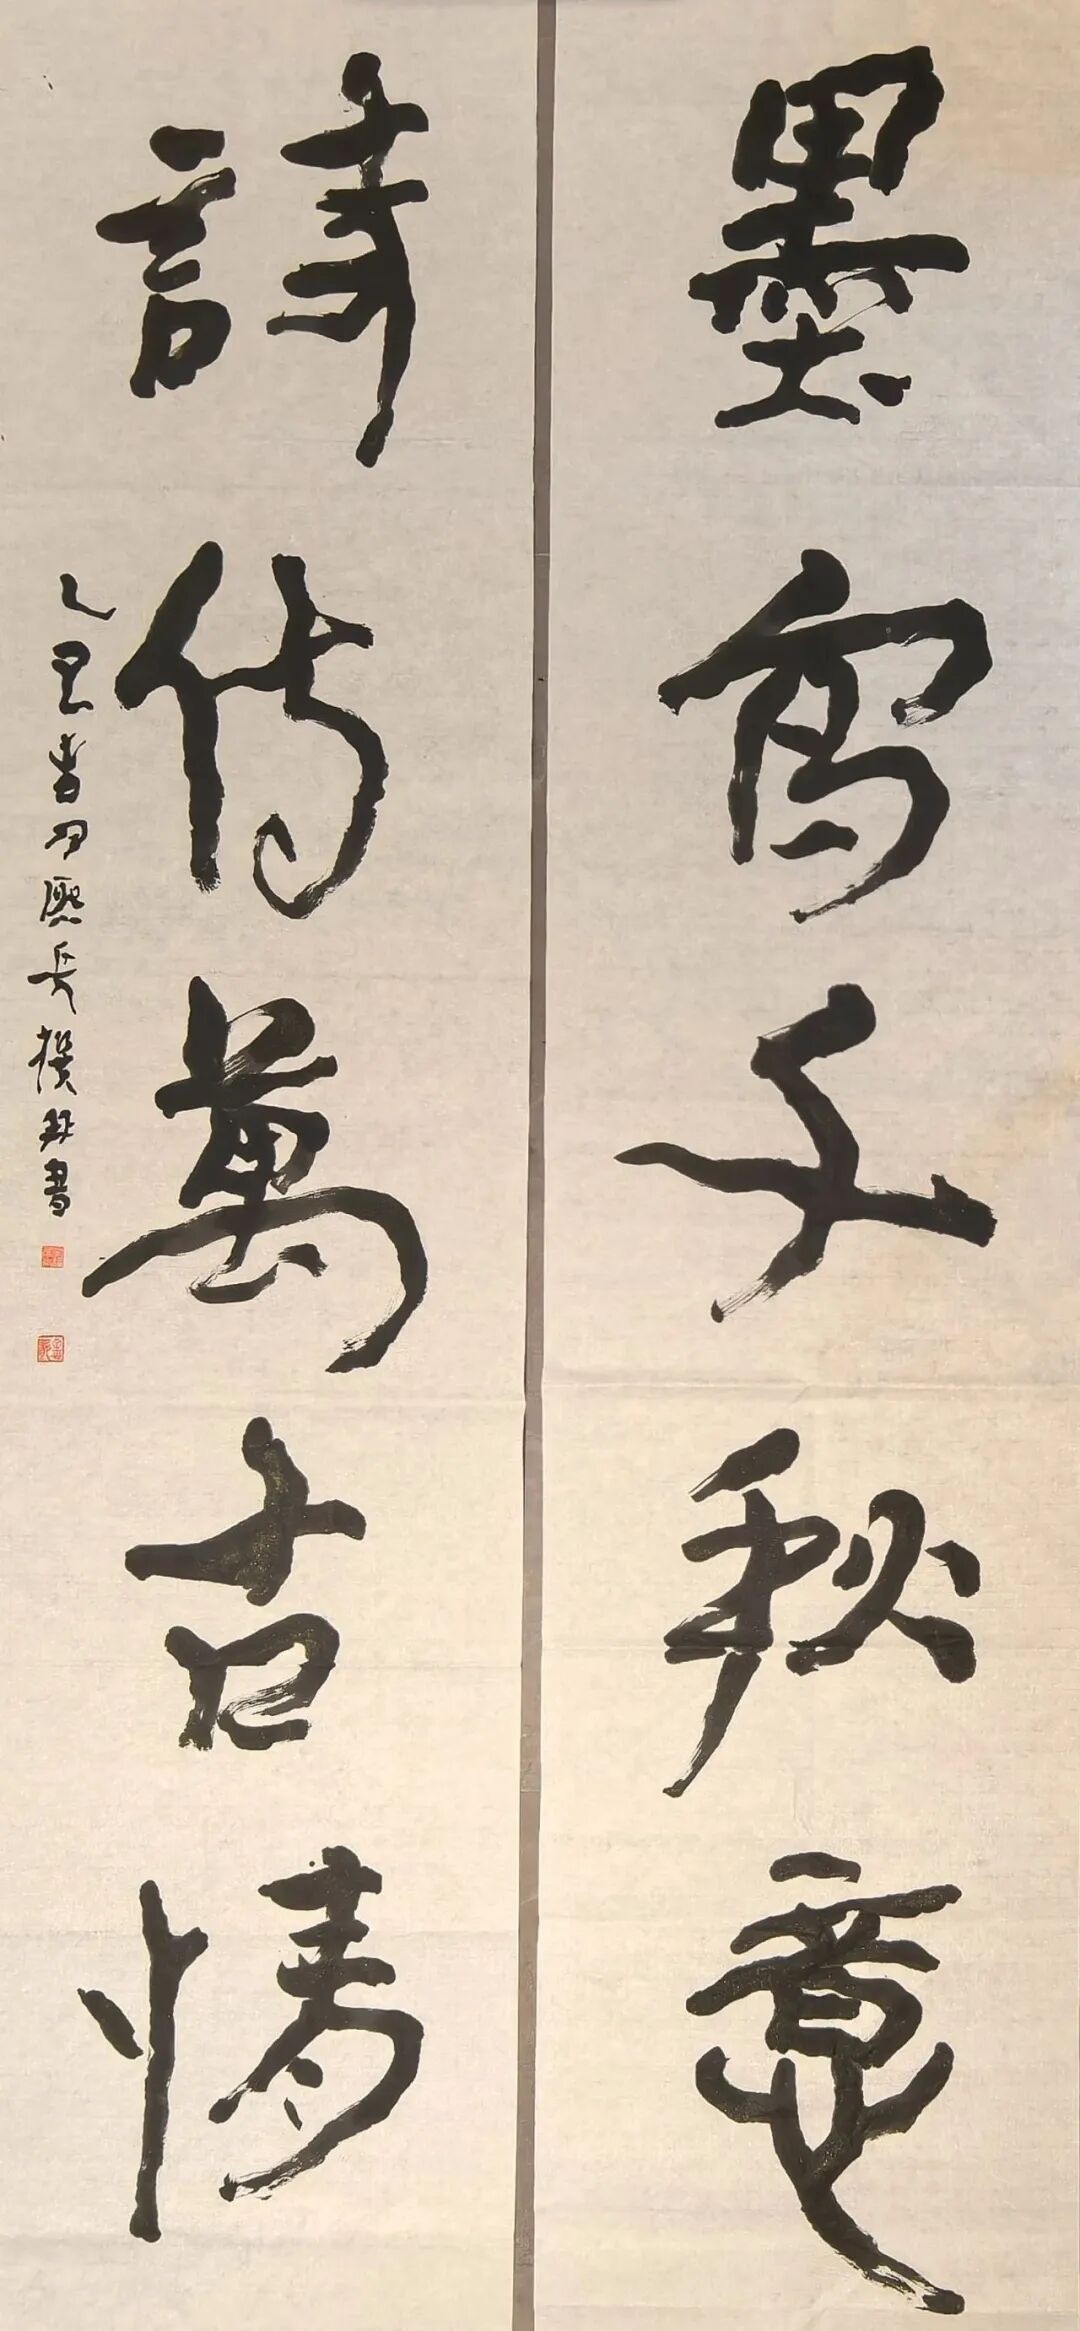 墨寫千秋意
詩傳萬古情
乙巳春月熙長撰并書